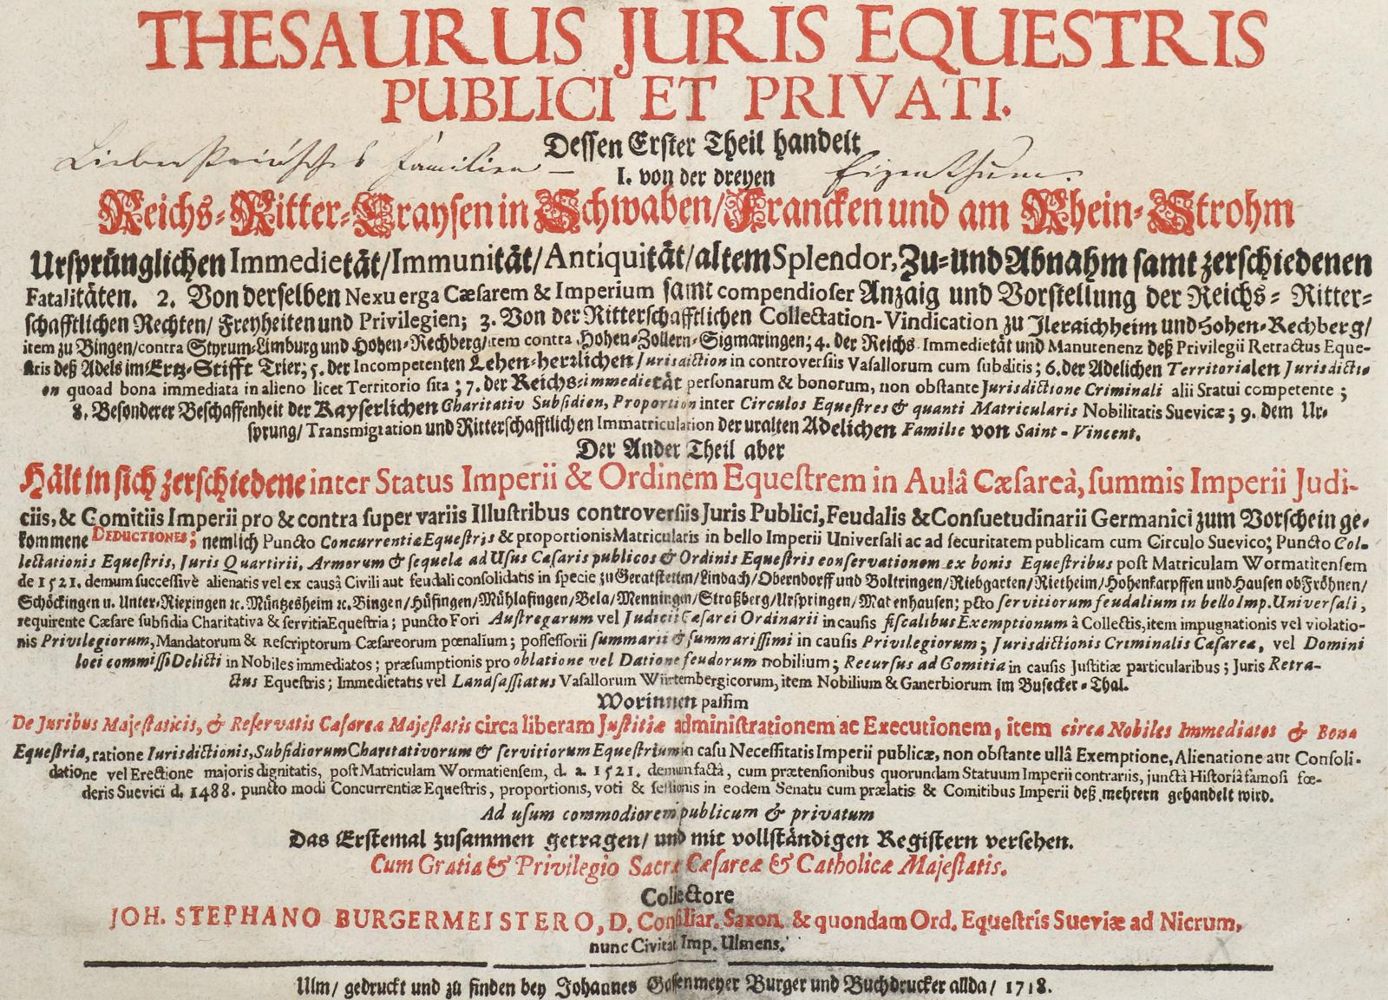 THESAURUS JURIS EQUESTRIS
PUBLICI ET PRIVATI.
Dessen Erster Theil handelt
Liebensteinisches Familien- Eigenthum.
I. von der dreyen
Reichs-Ritter-Craysen in Schwaben/Francken und am Rhein-Strohm
Ursprünglichen Immedietät/Immunität/Antiquität/altem Splendor, Zu- und Abnahm samt zerschiedenen
Fatalitäten. 2. Von derselben Nexu erga Cæsarem & Imperium samt compendioser Anzaig und Vorstellung der Reichs- Ritter-
schafftlichen Rechten/ Freyheiten und Privilegien; 3. Von der Ritterschafftlichen Collectation-Vindication zu Jleraichheim und Hohen-Rechberg/
item zu Bingen/contra Styrum-Limburg und Hohen-Rechberg/item contra Hohen-Zollern-Sigmaringen; 4. der Reichs Immedietät und Manutenenz deß Privilegii Retractus Eque-
stris deß Adels im Ertz-Stifft Trier; 5. der Incompetenten Lehen-herrlichen Jurisdiction in controversiis Vasallorum cum subditis; 6. der Adelichen Territorialen Jurisdictio
on quoad bona immediata in alieno licet Territorio sita; 7. der Reichs-immedietät personarum & bonorum, non obstante Jurisdictione Criminali alii Statui competente;
8. Besonderer Beschaffenheit der Kayserlichen Charitativ Subsidien, Proportion inter Circulos Equestres & quanti Matricularis Nobilitatis Suevicæ; 9. dem Ur-
sprung/ Transmigration und Ritterschafftlichen Immatriculation der uralten Adelichen Familie von Saint-Vincent.
Der Ander Theil aber
Hält in sich zerschiedene inter Status Imperii & Ordinem Equestrem in Aulâ Cæsareà, summis Imperii Judi-
ciis, & Comitiis Imperii pro & contra super variis Illustribus controversiis Juris Publici, Feudalis & Consuetudinarii Germanici zum Vorschein ge-
kommene DEDUCTIONES; nemlich Puncto Concurrentiæ Equestris & proportionis Matricularis in bello Imperii Universali ac ad securitatem publicam cum Circulo Suevico; Puncto Col-
lectationis Equestris, Juris Quartirii, Armorum & sequelæ ad Usus Cæsaris publicos & Ordinis Equestris conservationem ex bonis Equestribus post Matriculam Wormatiensem
de 1521. demum successivè alienatis vel ex causâ Civili aut feudali consolidatis in specie zu Geratstetten/Lindach/Oberndorff und Boltringen/Riebgarten/Rietheim/Hohenkarpffen und Hausen ob Fröhnen/
Schöckingen u. Unter-Riexingen ꝛc. Müntzesheim ꝛc. Bingen/Hüfingen/Mühlafingen/Bela/Menningen/Straßberg/Urspringen/Matenhausen; pcto servitiorum feudalium in bello Imp. Universali,
requirente Cæsare subsidia Charitativa & servitia Equestria; puncto Fori Austregarum vel Judicii Cæsarei Ordinarii in causis fiscalibus Exemptionum à Collectis, item impugnationis vel violatio-
nis Privilegiorum, Mandatorum & Rescriptorum Cæsareorum pœnalium; possessorii summarii & summarissimi in causis Privilegiorum; Jurisdictionis Criminalis Cæsareæ, vel Domini
loci commissi Delicti in Nobiles immediatos; præsumptionis pro oblatione vel Datione feudorum nobilium; Recursus ad Comitia in causis Justitiæ particularibus; Juris Retra-
ctus Equestris; Immedietatis vel Landsassiatus Vasallorum Würtembergicorum, item Nobilium & Ganerbiorum im Busecker-Thal.
Worinnen passim
De Juribus Majestaticis, & Reservatis Cæsareæ Majestatis circa liberam Justitiæ administrationem ac Executionem, item circa Nobiles Immediatos & Bona
Equestria, ratione Jurisdictionis, Subsidiorum Charitativorum & servitiorum Equestrium in casu Necessitatis Imperii publicæ, non obstante ullâ Exemptione, Alienatione aut Consoli-
datione vel Erectione majoris dignitatis, post Matriculam Wormatiensem, d. a. 1521. demum factâ, cum prætensionibus quorundam Statuum Imperii contrariis, junctâ Historiâ famosi fœ-
deris Suevici d. 1488. puncto modi Concurrentiæ Equestris, proportionis, voti & sessionis in eodem Senatu cum prælatis & Comitibus Imperii deß mehrern gehandelt wird.
Ad usum commodiorem publicum & privatum
Das Erstemal zusammen getragen/ und mit vollständigen Registern versehen.
Cum Gratia & Privilegio Sacræ Cæsareæ & Catholicæ Majestatis.
Collectore
JOH. STEPHANO BURGERMEISTERO, D. Consiliar. Saxon. & quondam Ord. Equestris Sueviæ ad Nicrum,
nunc Civitat. Imp. Ulmens.
Ulm/ gedruckt und zu finden bey Johannes Gassenmeyer Burger und Buchdrucker allda/ 1718.